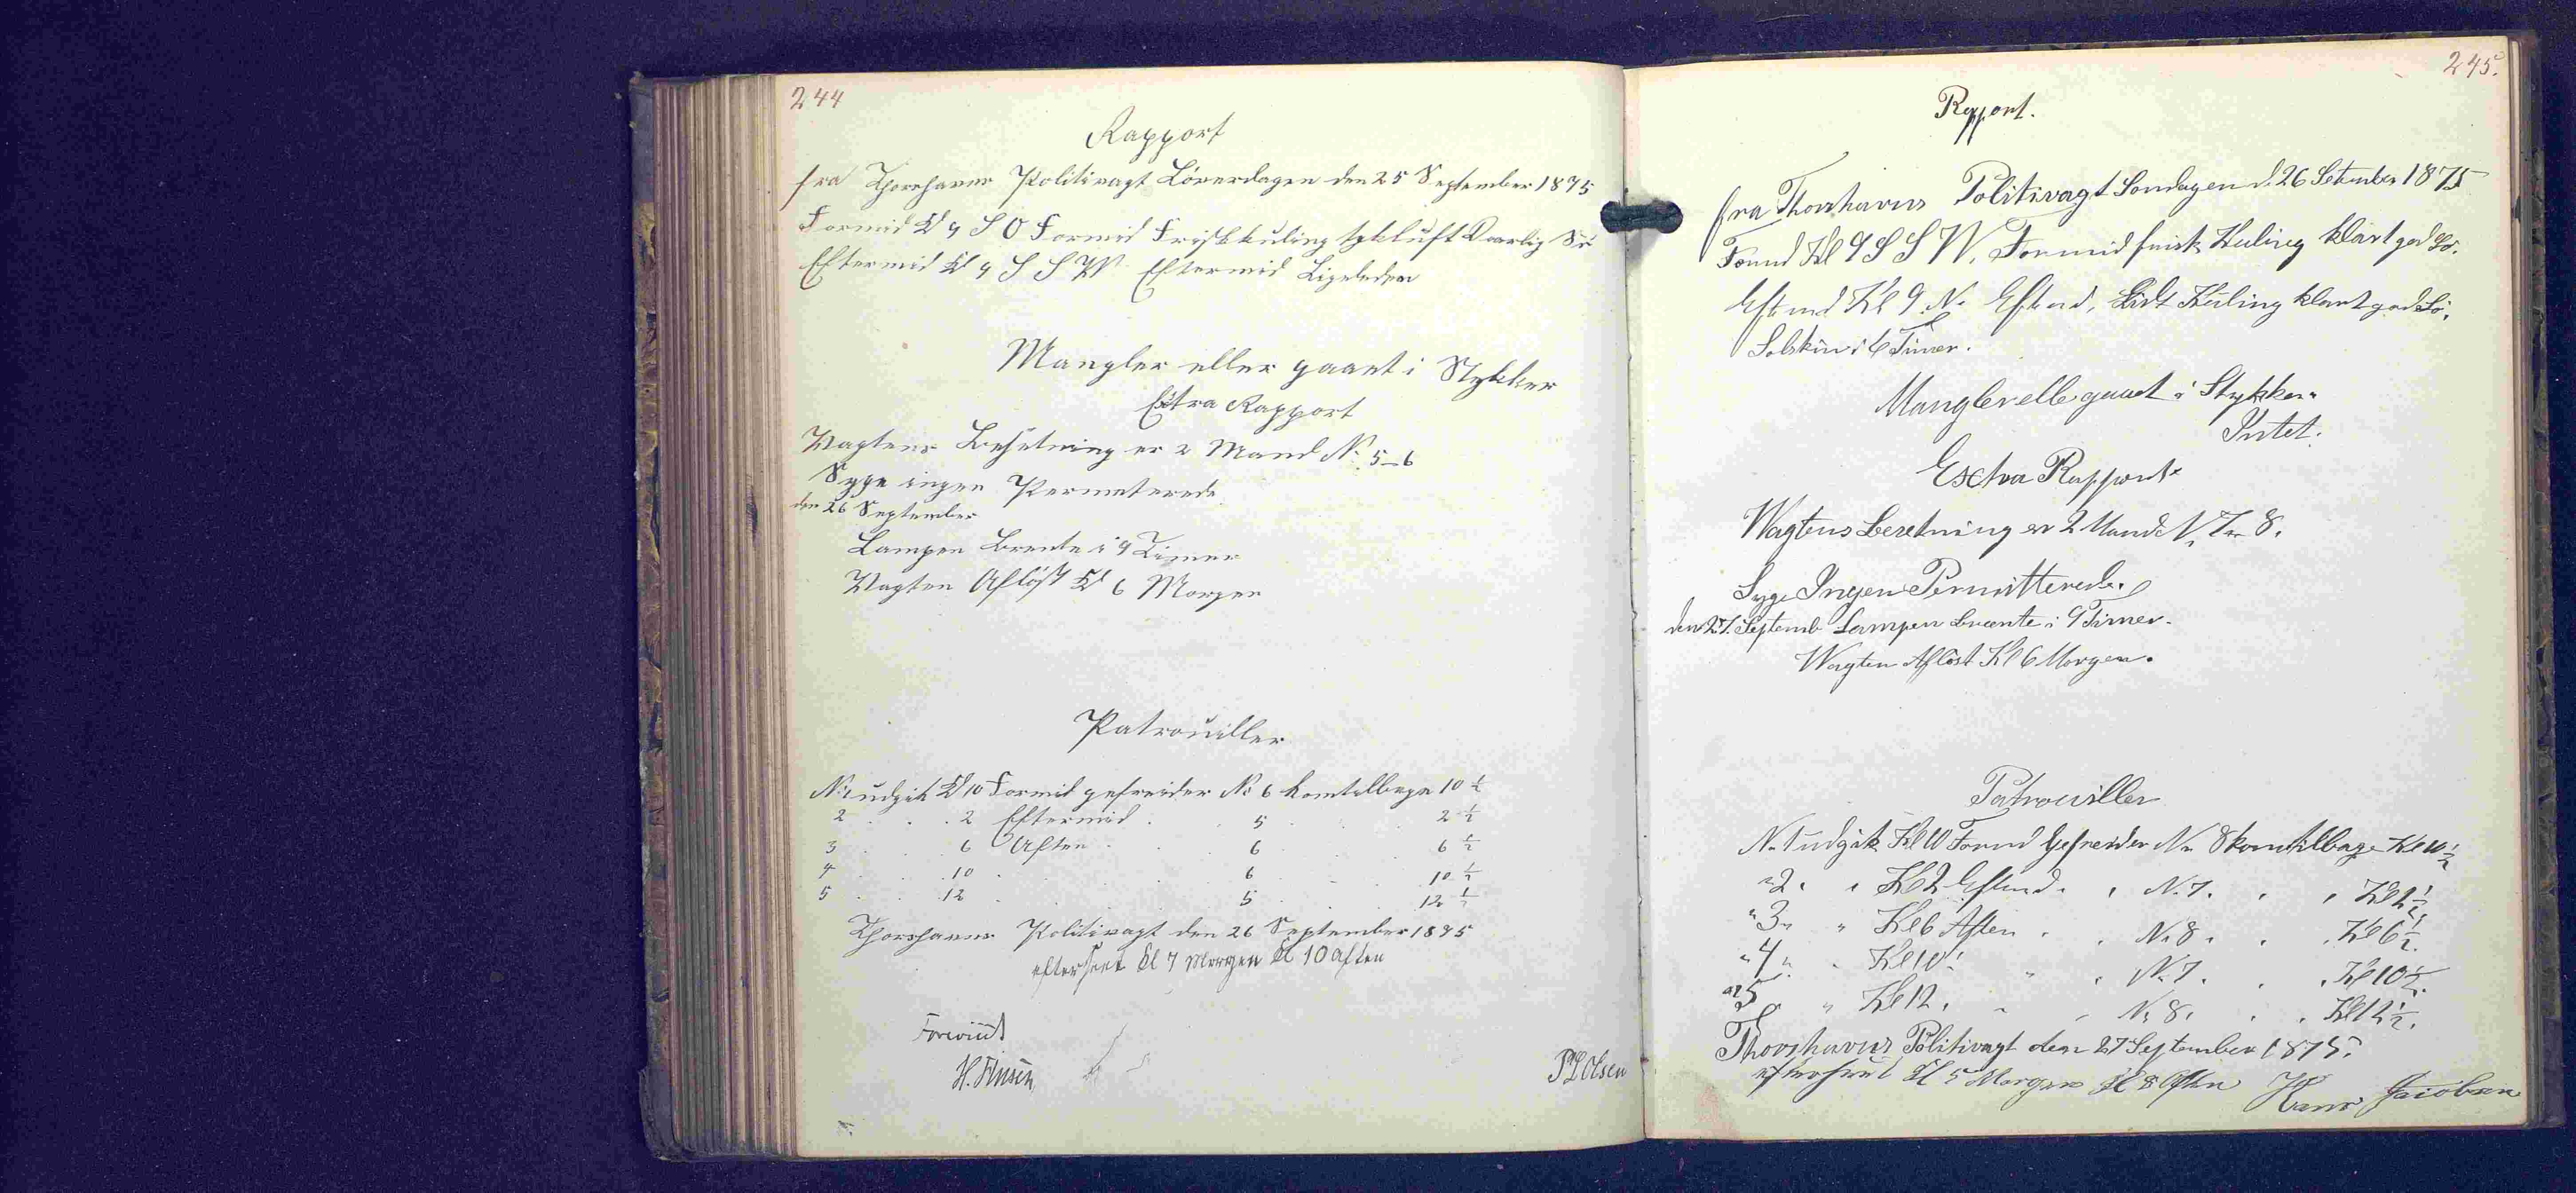 244
Rapport
fra Thorshavns Politivagt Löverdagen den 25 September 1875
Formid Kl 9 S O Formid Friskkuling tykluft Daarlig Sö
Eftermid Kl 9 S S W Eftermid Ligeleden
Mangler eller gaaet i Stykker
Extra Rapport
Vagtens Besetning er 2 Mand No 5-6
Syge ingen Permeterede
den 26 September
Lampen Brente i 9 Timer
Vagten Aflöst Kl 6 Morgen
Patrouiller
No 1 udgik Kl 10 Formid gefreider No 6 komtilbage 10 1/2
2 . . . 2 Eftermid . 5 . . 2 1/2
3 . . 6 Aften . . 6 . . 6 1/2
4 . . . 10 . . 6 . . 10 1/2
5 . . . 12 . . 5 . . 12 1/2
Thorshavns Politivagt den 26 September 1875
efterseet Kl 7 Morgen Kl 10 Aften
Foreviist
H. Finsen
P L Olsen
245.
Rapport.
fra Thorshavns Politivagt Sondagen d. 26 Setember 1875
Formd Kl 9 S S W. Formid frisk Kuling klart god Sö.
Eftmd Kl 9 N. Eftmd. Lidt Kuling klart god Sö.
Solskin i 6 Timer.
Mangler elle gaaet i Stykker.
Intet.
Extra Rapport
Wagtens Besetning er 2 Mand N. 7 - 8.
Syge Ingen Permitterede.
den 27. Septemb Lampen Brænte i 9 Timer.
Wagten Aflöst Kl 6 Morgen.
Patrouiller
N. 1 udgik Kl 10 Formd Gefreider No 8 kom tilbage Kl 10 1/2
" 2. " Kl 2 Eftmd. " N. 7. " " Kl 2 1/2
" 3 " " Kl 6 Aften . . N. 8 . . . Kl 6 1/2.
" 4 " . Kl 10. " . N. 7. . . Kl 10 1/2.
" 5 " " Kl 12. " . N. 8. . . Kl 12 1/2.
Thorshavns Politivagt den 27 September 1875.
efterseet Kl 5 Morgen Kl 8 Aften Hans Jacobsen